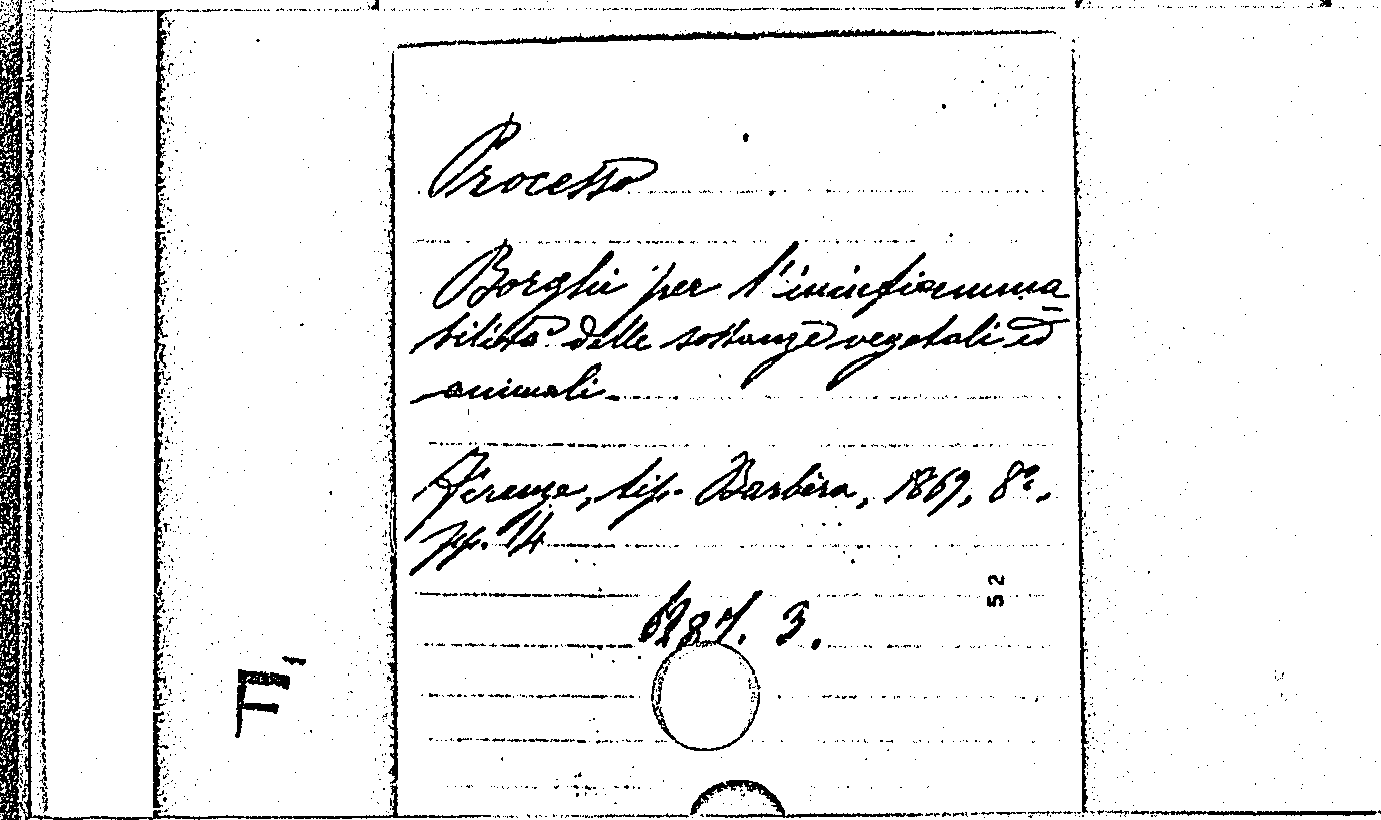 Processo
Borghi per l'ininfiamma=
bilità delle sostanze vegetali ed
animali.
Firenze, tip. Barbèra, 1869, 8º.
pp. 14
6287. 3.
52
F1